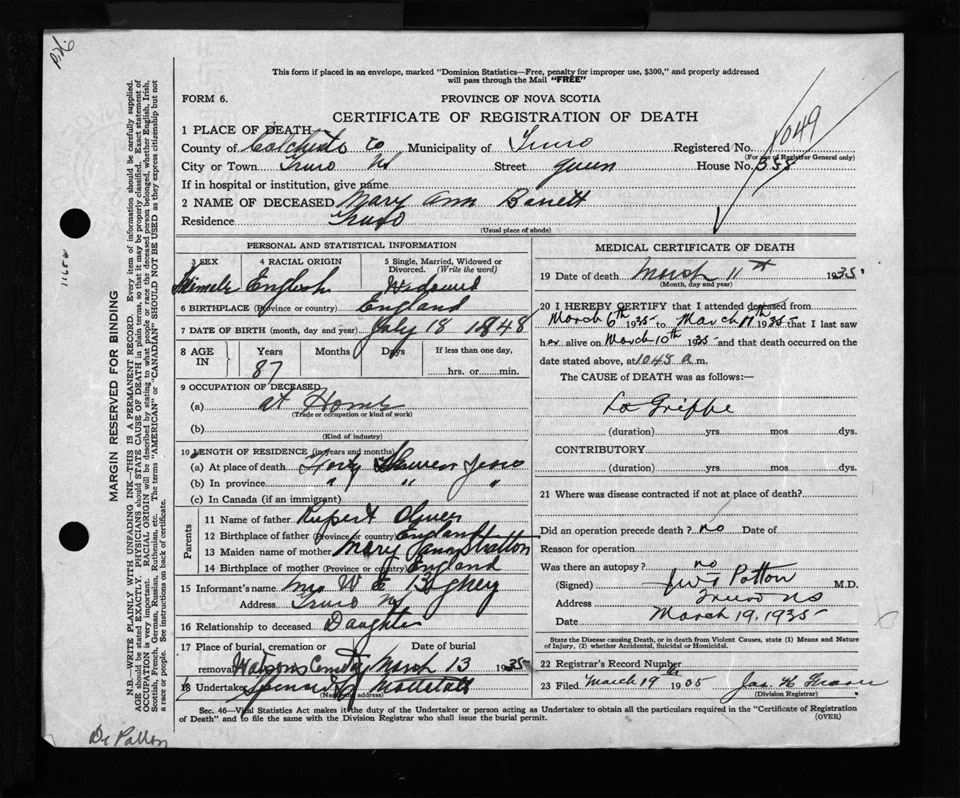 This form if placed in an envelope, marked "Dominion Statistics—Free, penalty for improper use, $300," and properly addressed
will pass through the Mail "FREE"
FORM 6.
PROVINCE OF NOVA SCOTIA
CERTIFICATE OF REGISTRATION OF DEATH
1 PLACE OF DEATH
County of Colchester Co Municipality of Truro Registered No. 1049
(For use of Registrar General only)
City or Town Truro NS Street Queen House No. 358
If in hospital or institution, give name
2 NAME OF DECEASED Mary Ann Barrett
Residence Truro
(Usual place of abode)
PERSONAL AND STATISTICAL INFORMATION
3 SEX 4 RACIAL ORIGIN 5 Single, Married, Widowed or
Divorced. (Write the word)
Female English Widowed
6 BIRTHPLACE (Province or country) England
7 DATE OF BIRTH (month, day and year) July 18 1848
8 AGE IN Years Months Days If less than one day,
87 hrs. or min.
9 OCCUPATION OF DECEASED
(a) at Home
(Trade or occupation or kind of work)
(b)
(Kind of industry)
10 LENGTH OF RESIDENCE (in years and months)
(a) At place of death Forty
(b) In province " " "
(c) In Canada (if an immigrant)
Parents
11 Name of father Rupert Oliver
12 Birthplace of father (Province or country) England
13 Maiden name of mother Mary Stratton
14 Birthplace of mother (Province or country) England
15 Informant's name Mrs W E
Address Truro NS
16 Relationship to deceased Daughter
17 Place of burial, cremation or Date of burial
removal Watsons Cemetery March 13 1935
18 Undertaker
(Name and address)
MEDICAL CERTIFICATE OF DEATH
19 Date of death March 11th 1935
(Month, day and year)
20 I HEREBY CERTIFY that I attended deceased from
March 6th 1935 to March 11th 1935 that I last saw
her alive on March 10th 1935 and that death occurred on the
date stated above, at 10 45 a.m.
The CAUSE of DEATH was as follows:—
La Grippe
(duration) yrs mos dys.
CONTRIBUTORY
(duration) yrs mos dys.
21 Where was disease contracted if not at place of death?
Did an operation precede death? no Date of
Reason for operation
Was there an autopsy? no
(Signed) Patton M.D.
Address Truro NS
Date March 19, 1935
State the Disease causing Death, or in death from Violent Causes, state (1) Means and Nature
of Injury, (2) whether Accidental, Suicidal or Homicidal.
22 Registrar's Record Number
23 Filed March 19 1935 Jas.
(Division Registrar)
Sec. 46—Vital Statistics Act makes it the duty of the Undertaker or person acting as Undertaker to obtain all the particulars required in the "Certificate of Registration
of Death" and to file the same with the Division Registrar who shall issue the burial permit. (OVER)
MARGIN RESERVED FOR BINDING
N.B.—WRITE PLAINLY WITH UNFADING INK—THIS IS A PERMANENT RECORD. Every item of information should be carefully supplied.
AGE should be stated EXACTLY. PHYSICIANS should STATE CAUSE OF DEATH in plain terms, so that it may be properly classified. Exact statement of
OCCUPATION is very important. RACIAL ORIGIN will be described by stating to what people or race the deceased person belonged, whether English, Irish,
Scottish, French, German, Russian, Ruthenian, etc. The terms "AMERICAN" or "CANADIAN" SHOULD NOT BE USED as they express citizenship but not
a race or people. See instructions on back of certificate.
Dr Patton